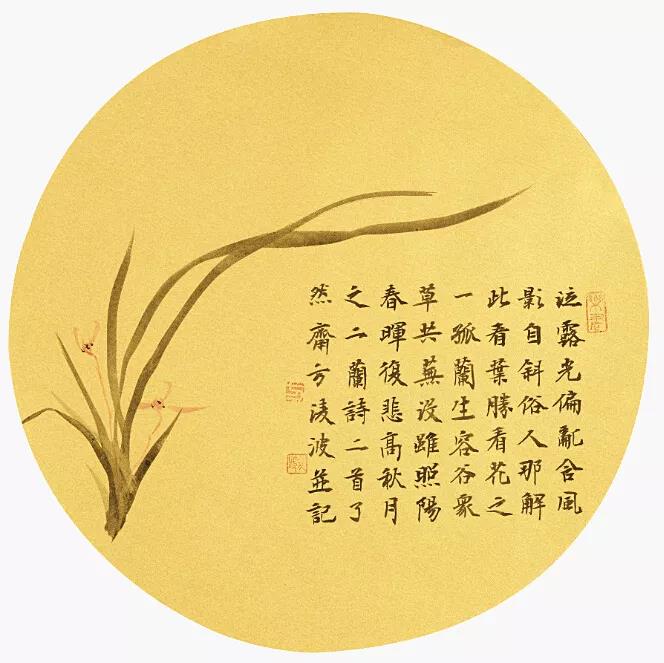 泣露光偏亂含風
影自斜俗人那解
此看葉勝看花之
一孤蘭生容谷衆
草共蕪没雖照陽
春暉復悲高秋月
之二蘭詩二首了
然齋方凌波並記